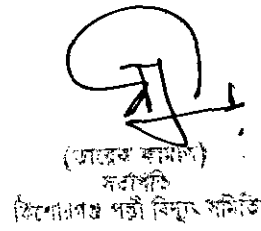 (তারেক কামাল)
সভাপতি
কিশোরগঞ্জ পল্লী বিদ্যুৎ সমিতি